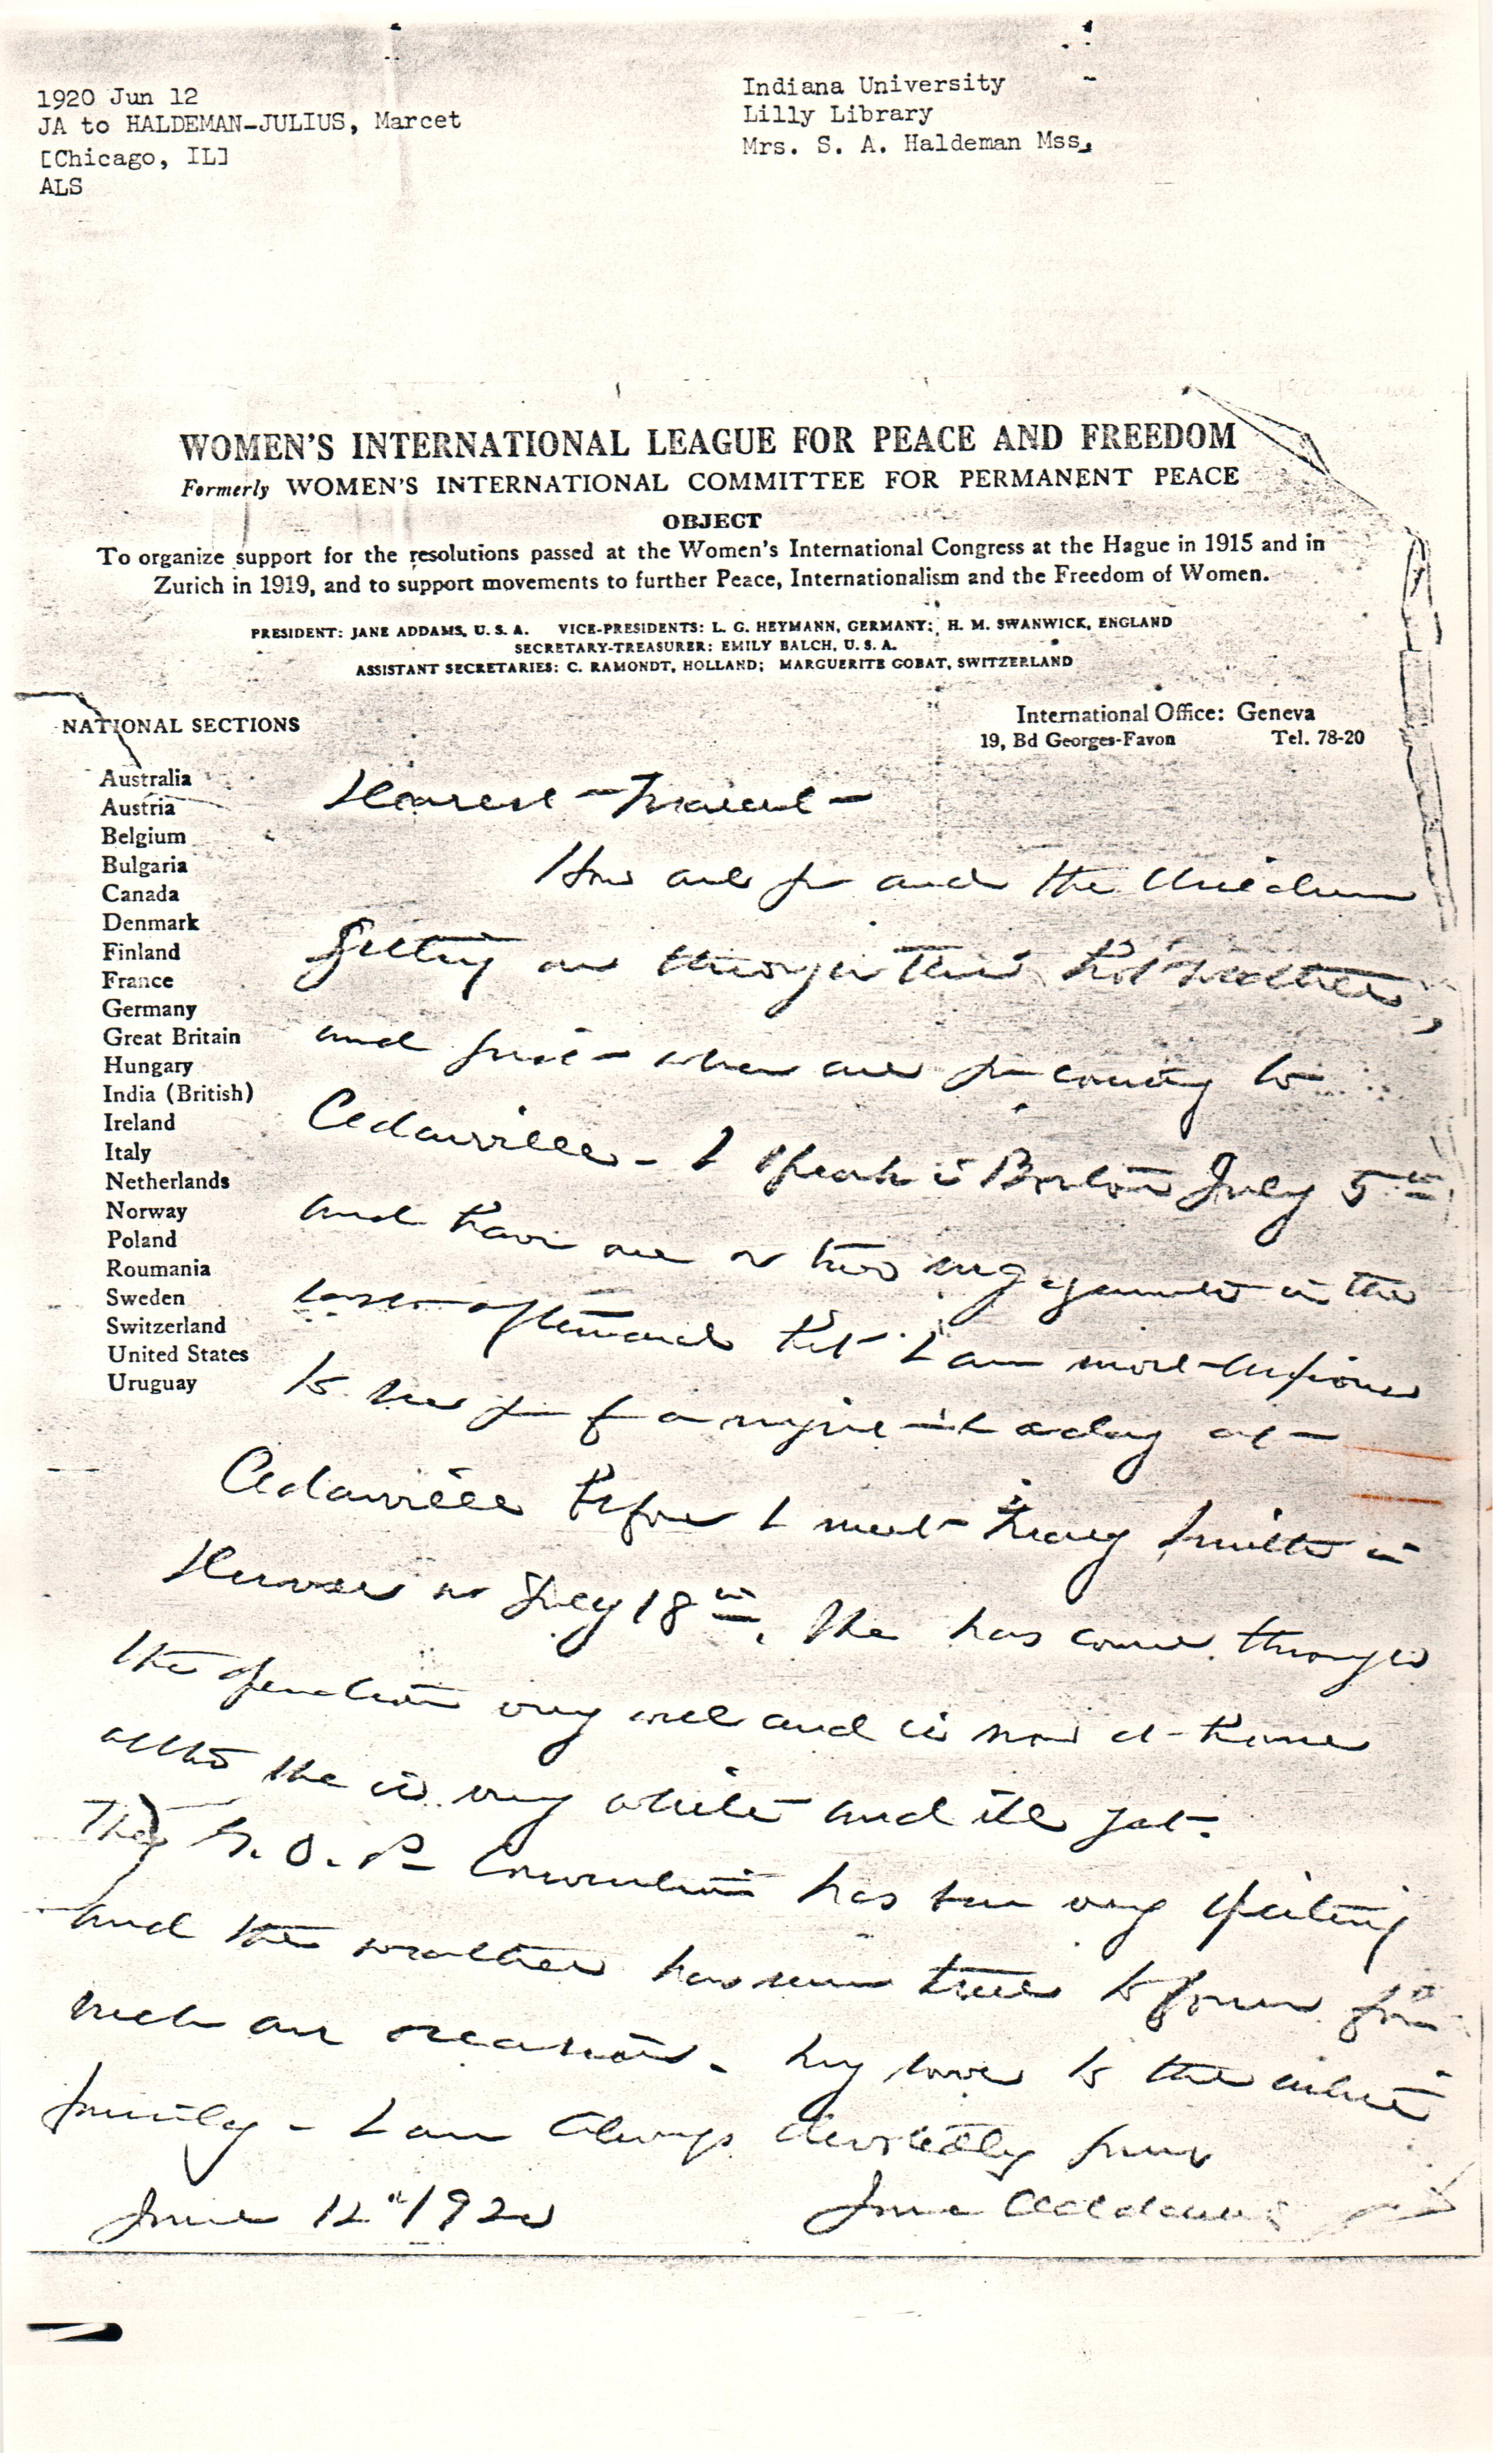 1920 Jun 12
JA to HALDEMAN-JULIUS, Marcet
[Chicago, IL]
ALS
Indiana University
Lilly Library
Mrs. S. A. Haldeman Mss.
WOMEN'S INTERNATIONAL LEAGUE FOR PEACE AND FREEDOM
Formerly WOMEN'S INTERNATIONAL COMMITTEE FOR PERMANENT PEACE
OBJECT
To organize support for the resolutions passed at the Women's International Congress at the Hague in 1915 and in
Zurich in 1919, and to support movements to further Peace, Internationalism and the Freedom of Women.
PRESIDENT: JANE ADDAMS, U. S. A. VICE-PRESIDENTS: L. G. HEYMANN, GERMANY; H. M. SWANWICK, ENGLAND
SECRETARY-TREASURER: EMILY BALCH, U. S. A.
ASSISTANT SECRETARIES: C. RAMONDT, HOLLAND; MARGUERITE GOBAT, SWITZERLAND
International Office: Geneva
19, Bd Georges-Favon Tel. 78-20
NATIONAL SECTIONS
Australia
Austria
Belgium
Bulgaria
Canada
Denmark
Finland
France
Germany
Great Britain
Hungary
India (British)
Ireland
Italy
Netherlands
Norway
Poland
Roumania
Sweden
Switzerland
United States
Uruguay
Dearest Marcet -
How are you and the children
getting on through this hot weather,
and just when are you coming to
Cedarville - I speak in Boston July 5th
and have one or two engagements in the
east afterward but I am most anxious
to see you for a night & a day at
Cedarville before I meet Mary Smith in
Denver on July 18th. She has come through
the operation very well and is now at home
altho she is very white and ill yet.
The G. O. P. Convention has been very exciting
and the weather has run true to form for
such an occasion. My love to the entire
family - I am always devotedly yours
June 12" 1920 Jane Addams